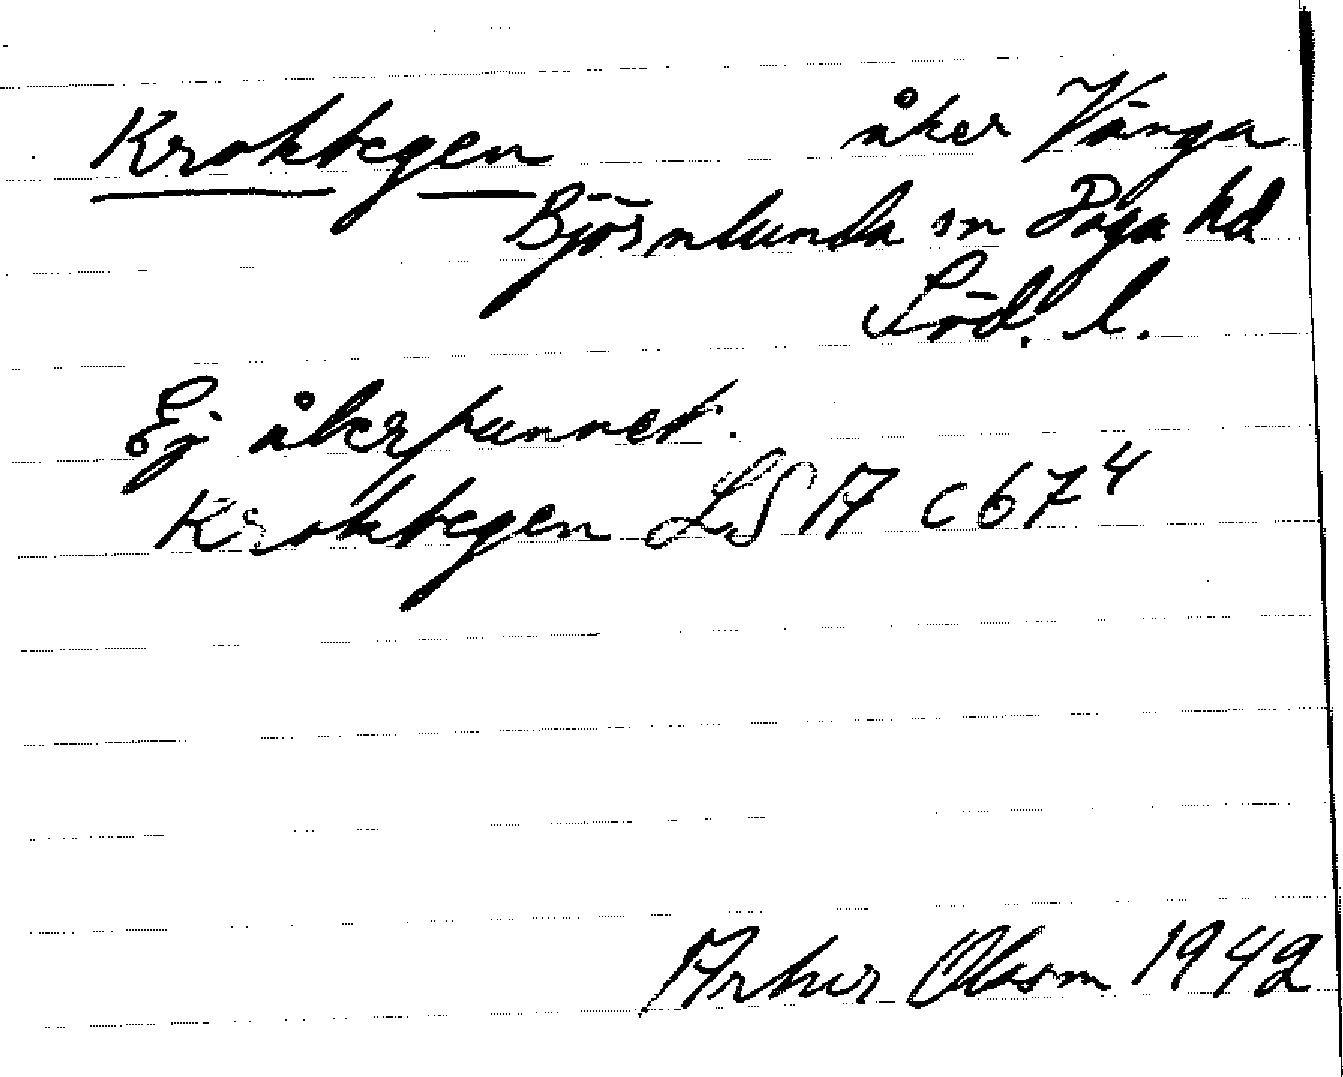 Kroktegen åker Vänga
Björnlunda sn Daga hd
Söd. l.
Ej återfunnet.
Kroktegen LS A7 c 67⁴
Arthur Olsson 1942